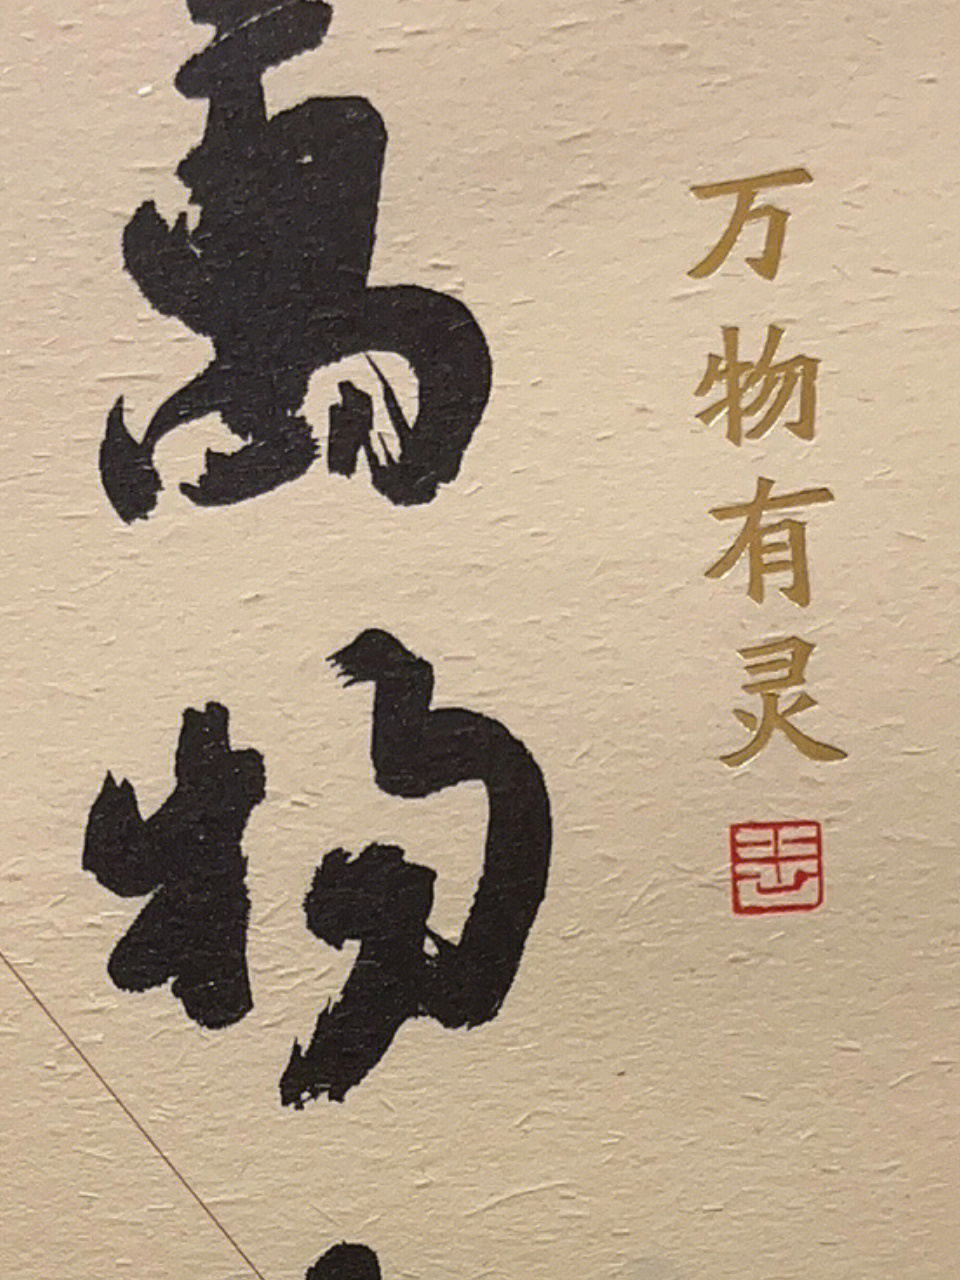 万物有灵
萬物